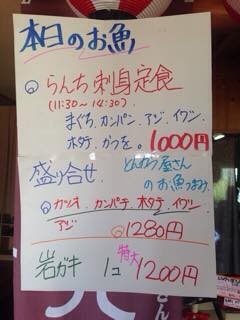 本日のお魚
らんち刺身定食
(11:30～14:30)
まぐち.カンパン.アジ.イワシ
ホタテ.かつを。1000円
盛り合せ
屋さん
のお魚つまみ
カツオ.カンパチ.ホタテ.イワシ
アジ
1280円
岩ガキ 1コ 特大 1200円